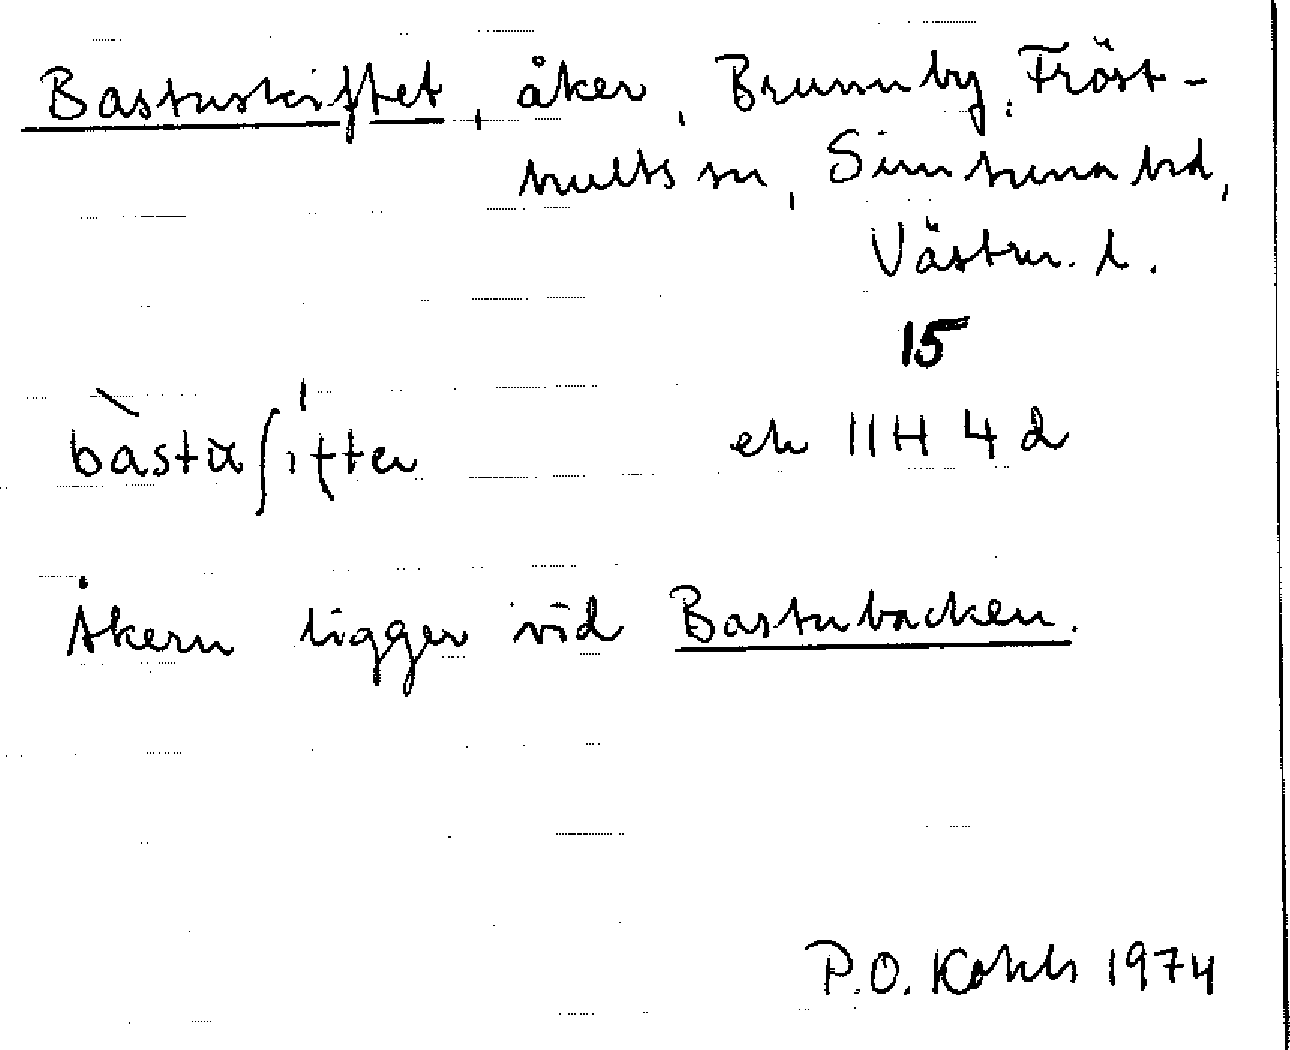 Bastuskiftet, åker, Brunnby, Fröst-
hults sn, Simtuna hd,
Västm. l.
15
ek 11H 4 d
Åkern ligger vid Bastubacken.
P.O. 1974